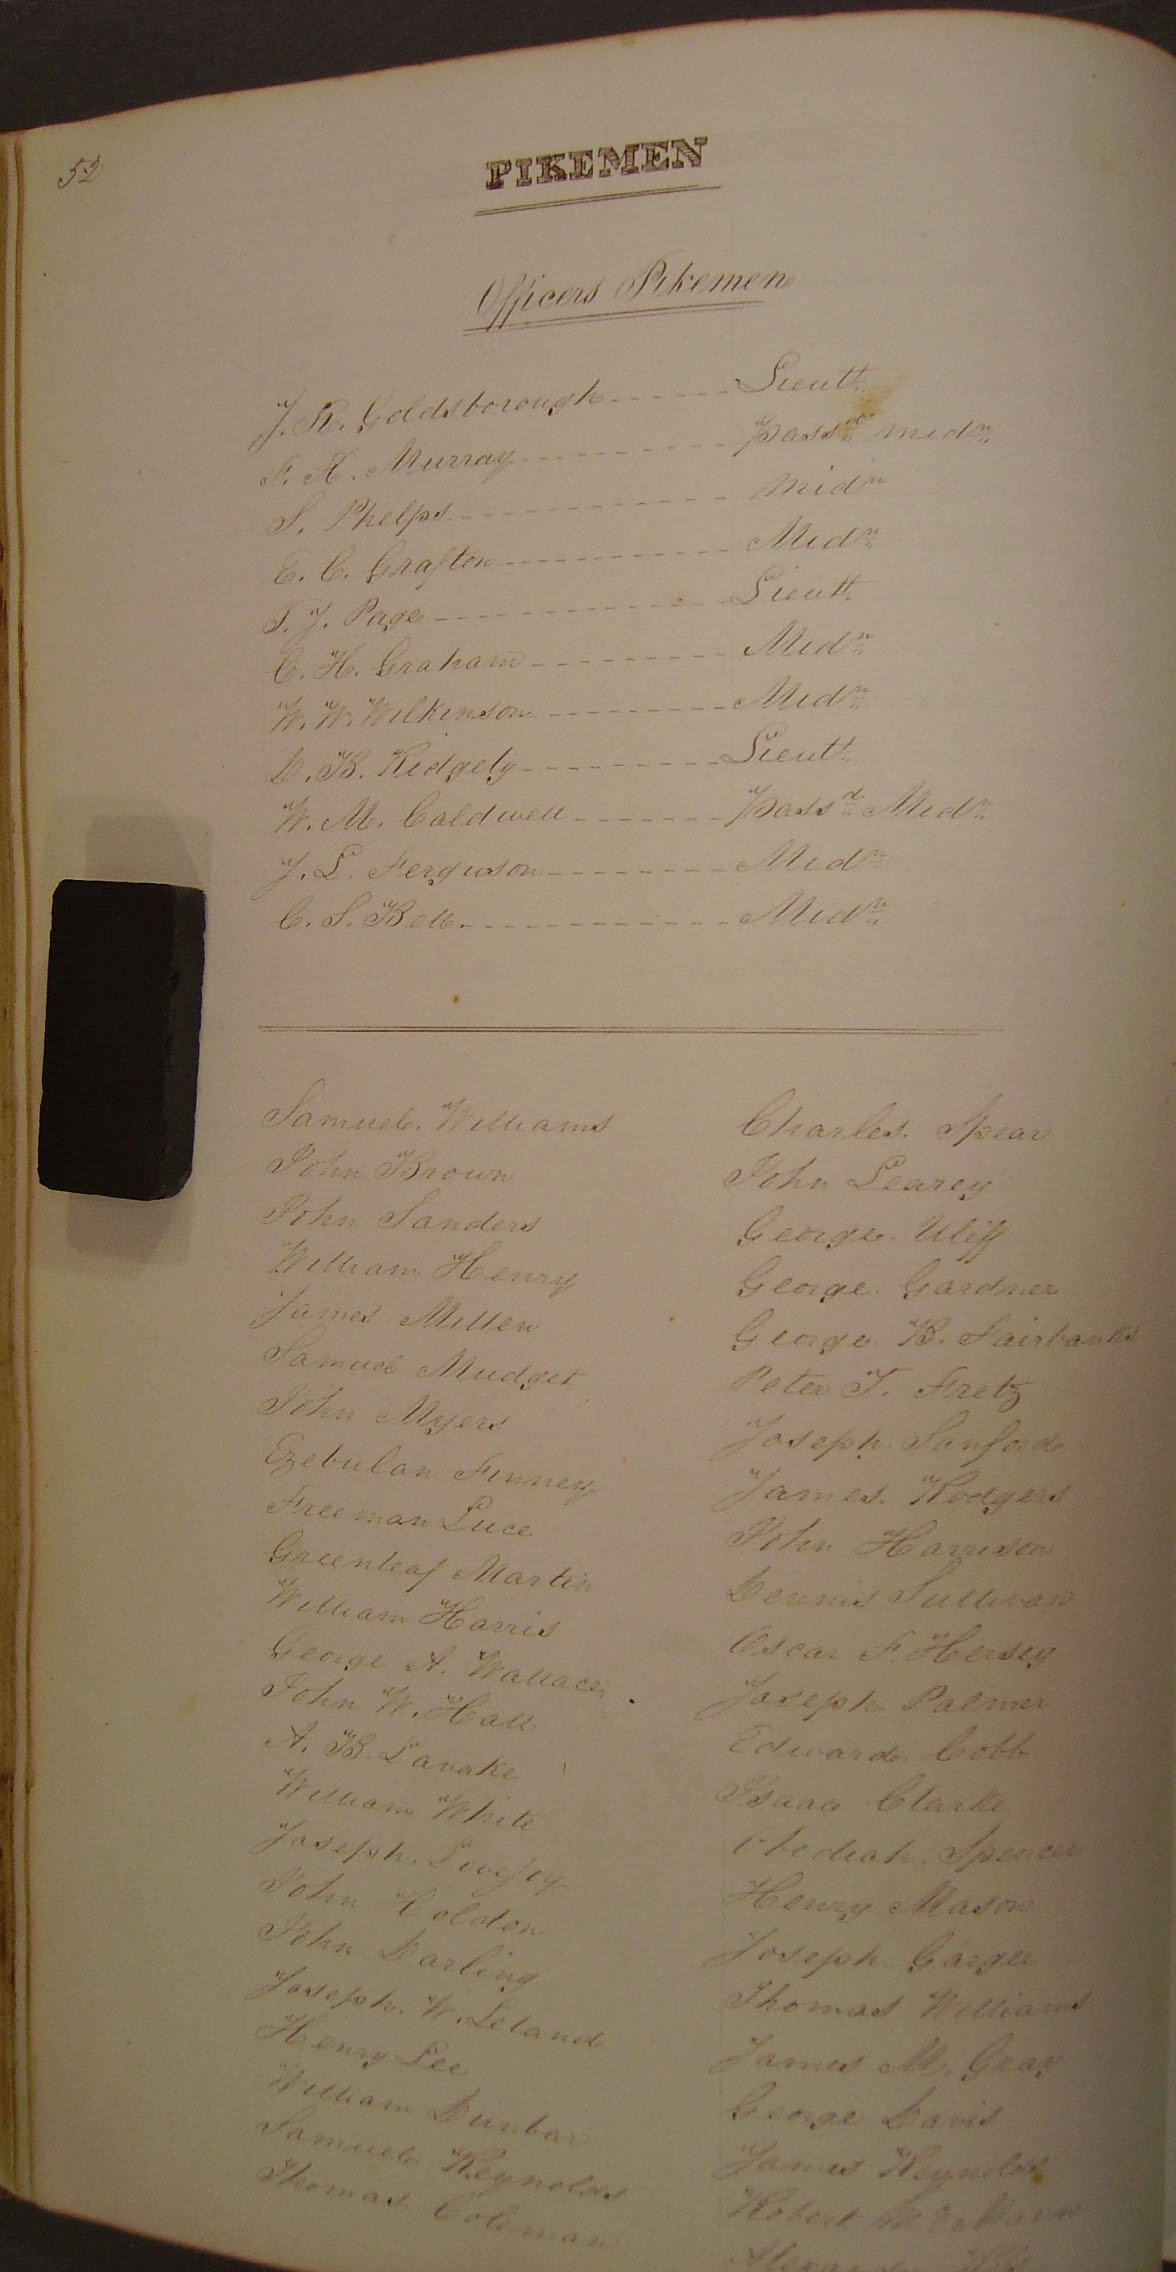 52
PIKEMEN
Officers Pikemen
J. R. Goldsborough Lieutt.
F. K. Murray Passd. Midn.
S. Phelps Midn
E. C. Grafton Midn.
T. J. Page Lieutt.
C. H. Graham Midn.
W. W. Wilkinson Midn.
D. B. Ridgely Lieutt.
W. M. Caldwell Passd. Midn.
J. L. Ferguson Midn.
C. S. Bell. Midn.
Samuel. Williams
John Brown
John Sanders
William Henry
James Miller
Samuel Mudget
John Myers
Ezebulan Finney
Freeman Luce
Greenleaf Martin
William Harris
George A. Wallace
John W. Hall
A. B. Lavake
William White
Joseph. Lovejoy
John Holdon
John Darling
Joseph. W. Leland
Henry Lee
William Dunbar
Samuel Reynolds
Thomas Coleman
Charles. Spear
John Learey
George. Uliff
George. Gardner
George. B. Fairbanks
Peter T. Fretz
Joseph Sanford
James. Rodgers
John Harrison
Dennis Sullivan
Oscar F. Hersey
Joseph Palmer
Edward Cobb
Isaac Clarke
Obediah. Spencer
Henry Mason
Joseph
Thomas Williams
James M. Gray
George Davis
James Reynolds
Robert